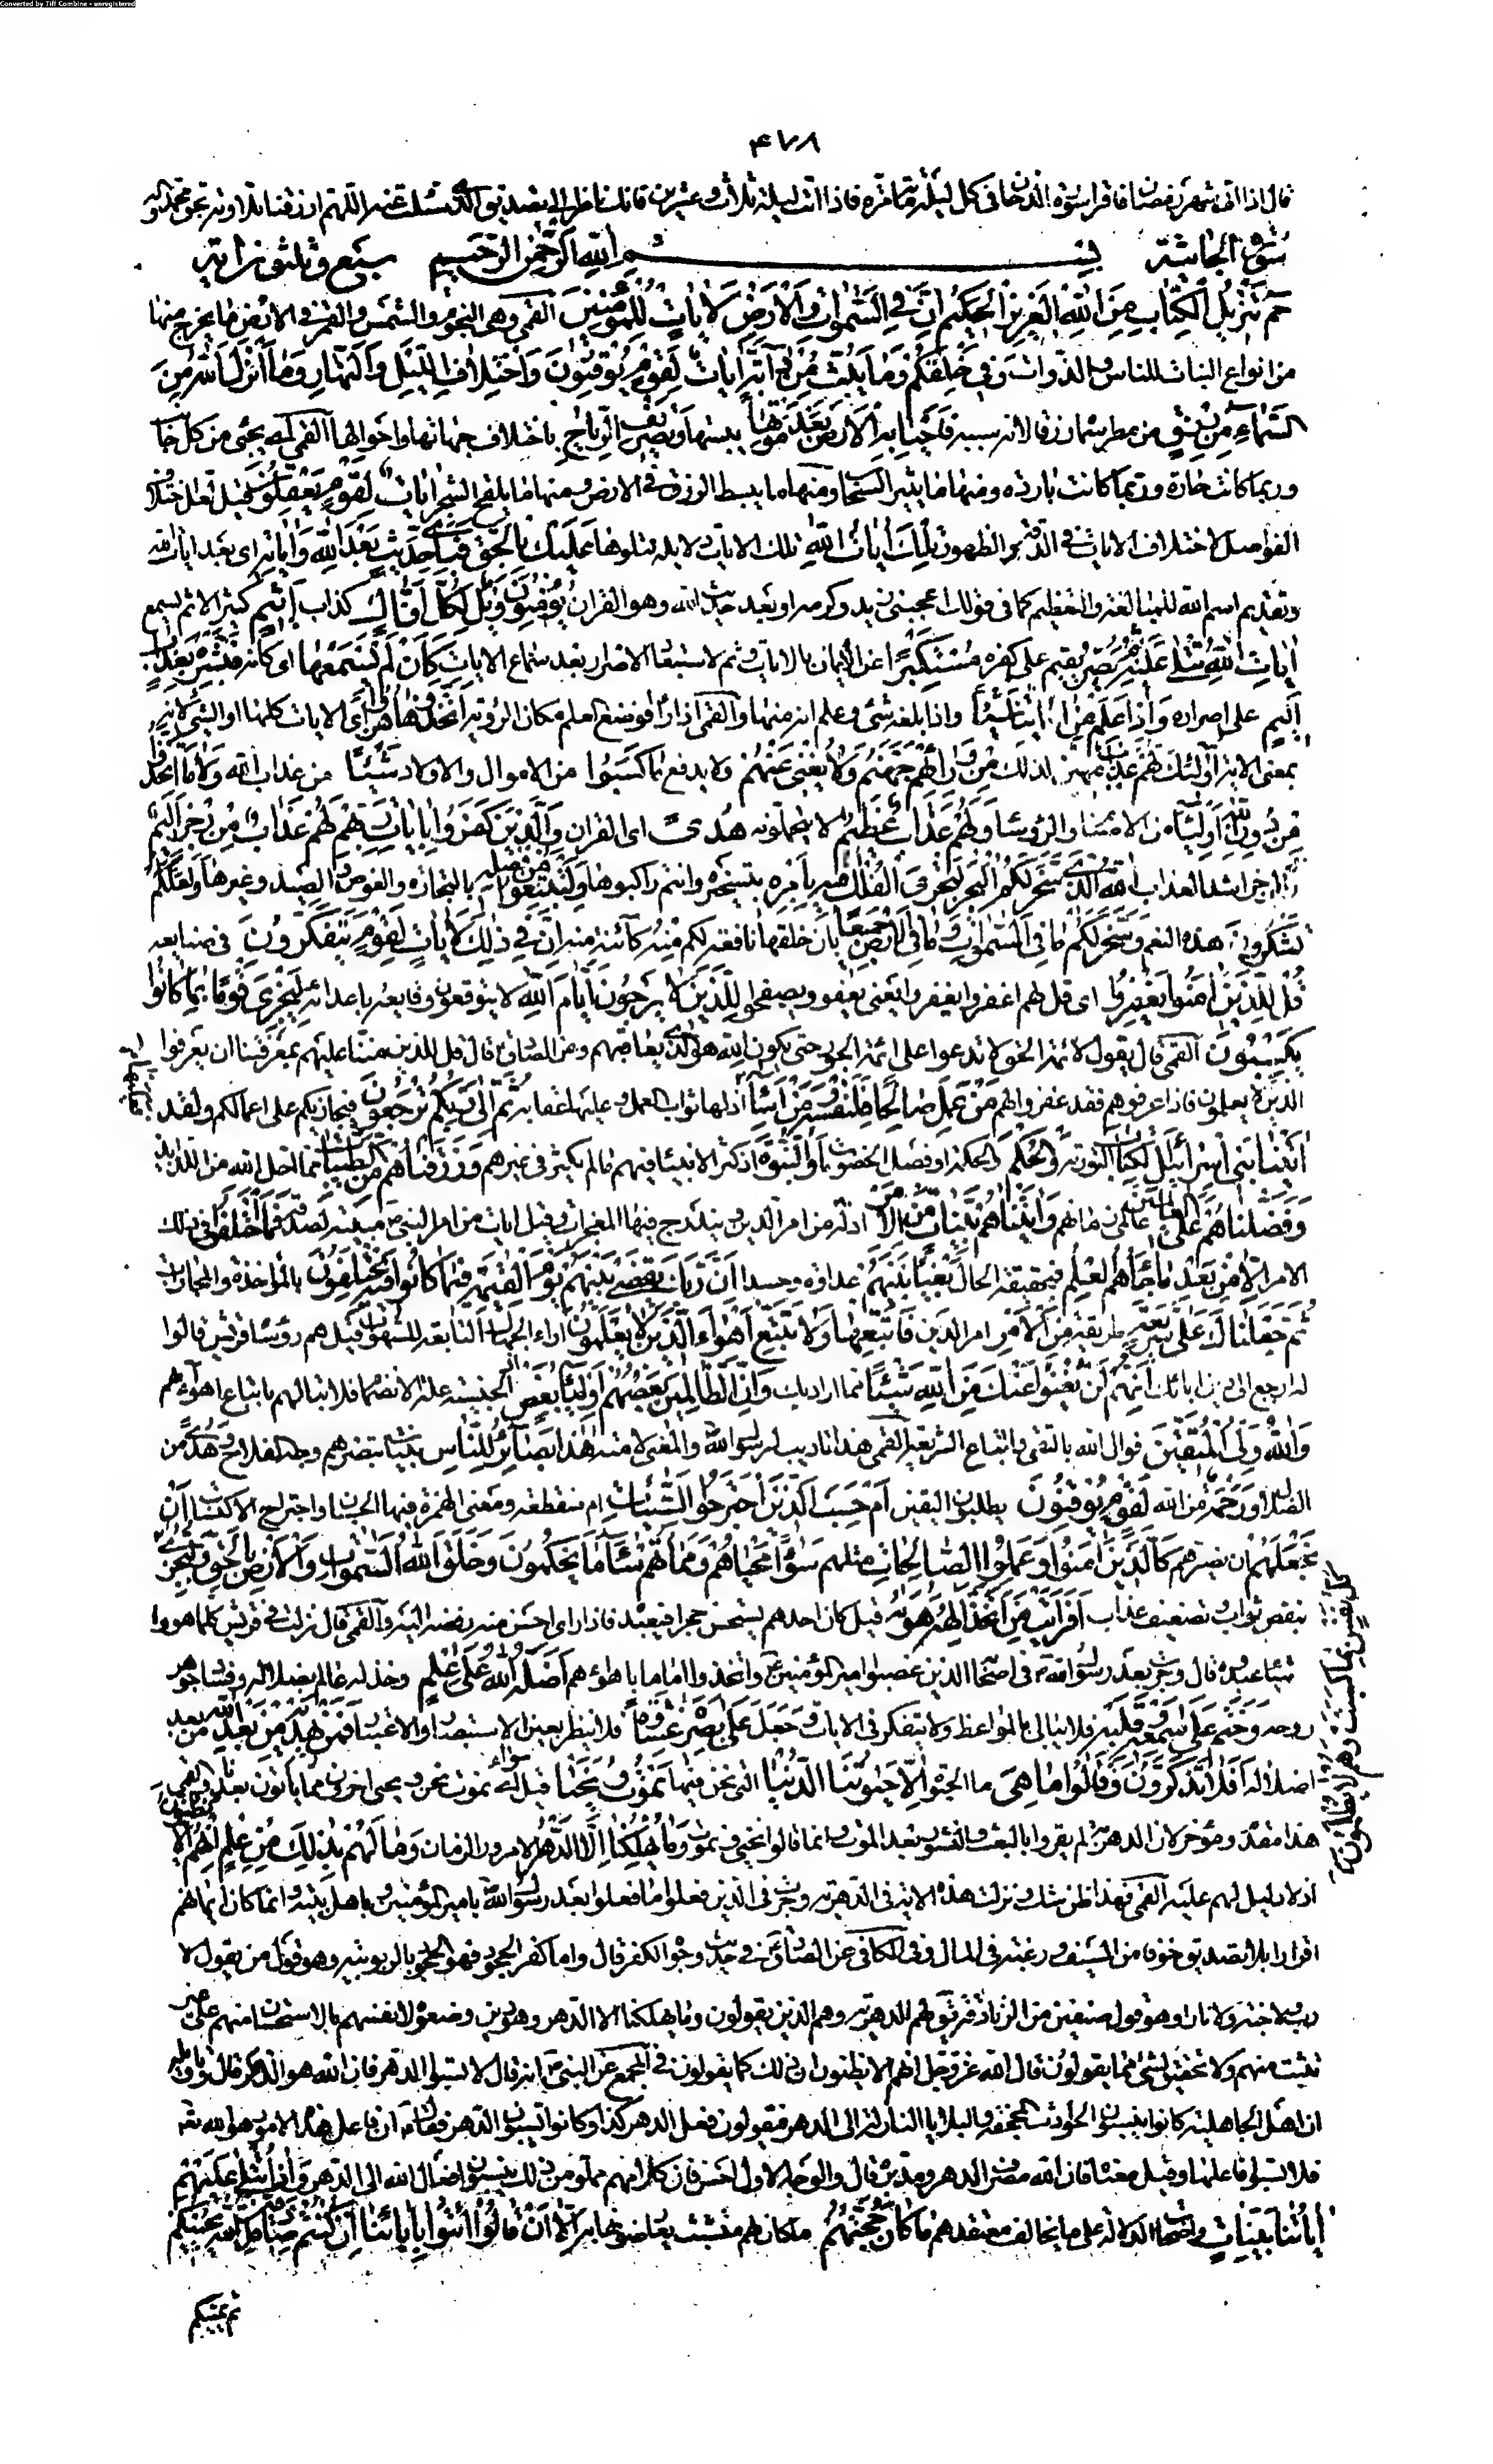 Converted by Tiff Combine - unregistered
۴۷۸
قال اذا اتى شهر رمضان فاقرأ سورة الدخان فى كل ليلة مرة فاذا اتت ليلة ثلاث و عشرين فانك ناظر الى تصديق الذى سئلت عنه اللهم ارزقنا تلاوته بحق محمد و آله
سورة الجاثية بسم الله الرحمن الرحيم سبع و ثلثون اية
حم تنزيل الكتاب من الله العزيز الحكيم ان فى السموات و الارض لايات للمؤمنين القمى و هى النجوم و الشمس و القمر و فى الارض ما يخرج منها
من انواع النبات للناس و الدواب و فى خلقكم و ما يبث من دابة ايات لقوم يوقنون و اختلاف الليل و النهار و ما انزل الله من
السماء من رزق من مطر سماه رزقا لانه سببه فاحيا به الارض بعد موتها يبسها و تصريف الرياح باختلاف جهاتها و احوالها القمى اى يجئ من كل جانب
و ربما كانت حارة و ربما كانت باردة و منها ما يثير السحاب و منها ما يبسط الرزق فى الارض و منها ما يلقح الشجر ايات لقوم يعقلون قيل لعل اختلاف
الفواصل لاختلاف الايات فى الدقة و الظهور تلك ايات الله تلك الايات دلايله نتلوها عليك بالحق فباى حديث بعد الله و اياته اى بعد ايات الله
و تقديم اسم الله للمبالغة و التعظيم كما فى قولك اعجبنى زيد و كرمه او بعد حديث الله و هو القران يؤمنون ويل لكل افاك كذاب اثيم كثير الاثم يسمع
ايات الله تتلى عليه ثم يصر يقيم على كفره مستكبرا عن الايمان بالايات و ثم لاستبعاد الاصرار بعد سماع الايات كان لم يسمعها اى كانه فبشره بعذاب
اليم على اصراره و اذا علم من اياتنا شيئا و اذا بلغه شئ و علم انه منها و القمى اذا راى فوضع العلم مكان الرؤية اتخذها هزوا اى الايات كلها او الشئ لانه
بمعنى الاية اولئك لهم عذاب مهين لذلك من ورائهم جهنم و لا يغنى عنهم و لا يدفع ما كسبوا من الاموال و الاولاد شيئا من عذاب الله و لا ما اتخذوا
من دون الله اولياء من الاصنام و الرؤساء و لهم عذاب عظيم لا يتحملونه هذا هدى اى القران و الذين كفروا بايات ربهم لهم عذاب من رجز اليم
الرجز اشد العذاب الله الذى سخر لكم البحر لتجرى الفلك فيه بامره بتسخيره و انتم راكبوها و لتبتغوا من فضله بالتجارة و الغوص و الصيد و غيرها و لعلكم
تشكرون هذه النعم و سخر لكم ما فى السموات و ما فى الارض جميعا بان خلقها نافعة لكم منه كائنة منه ان فى ذلك لايات لقوم يتفكرون فى صنايعه
قل للذين امنوا يغفروا اى قل لهم اغفروا يغفروا يعنى يعفو و يصفحوا للذين لا يرجون ايام الله لا يتوقعون وقايعه باعدائه ليجزى قوما بما كانوا
يكسبون القمى قال يقول لائمة الحق لا تدعوا على ائمة الجور حتى يكون الله هو الذى يعاقبهم و عن الصادق قال قل للذين مننا عليهم بمعرفتنا ان يعرفوا
الذين لا يعلمون فاذا عرفوهم فقد غفروا لهم من عمل صالحا فلنفسه و من اساء فعليها اذ لها ثواب العمل و عليها عقابه ثم الى ربكم ترجعون فيجازيكم على اعمالكم و لقد
اتينا بنى اسرائيل الكتاب التورية و الحكم و الحكمة او فصل الخصومات و النبوة اذ كثر الانبياء فيهم ما لم يكثر فى غيرهم و رزقناهم من الطيبات مما احل الله من اللذايذ
و فضلناهم على العالمين عالمى زمانهم و اتيناهم بينات من الامر ادلة من امر الدين و يندرج فيها المعجزات و قيل ايات من امر النبى مبينة لصدقه فما اختلفوا فى ذلك
الامر الا من بعد ما جاءهم العلم بحقيقة الحال بغيا بينهم عداوة و حسدا ان ربك يقضى بينهم يوم القيمة فيما كانوا فيه يختلفون بالمؤاخذة و المجازات
ثم جعلناك على شريعة طريقة من الامر امر الدين فاتبعها و لا تتبع اهواء الذين لا يعلمون اراء الجهال التابعة للشهوات قيل هم رؤساء قريش قالوا
له ارجع الى دين ابائك انهم لن يغنوا عنك من الله شيئا مما اراد بك و ان الظالمين بعضهم اولياء بعض اذ الجنسية علة الانضمام فلا توالهم باتباع اهوائهم
و الله ولى المتقين فواال الله بالتقى و اتباع الشريعة القمى هذا تاديب لرسول الله و المعنى لامته هذا بصائر للناس بينات تبصرهم وجه الفلاح و هدى من
الضلال و رحمة من الله لقوم يوقنون يطلبون اليقين ام حسب الذين اجترحوا السيئات ام منقطعة و معنى الهمزة فيها انكار الحسبان و اجتراح الاكتساب ان
نجعلهم ان نصيرهم كالذين امنوا و عملوا الصالحات مثلهم سواء محياهم و مماتهم ساء ما يحكمون و خلق الله السموات و الارض بالحق و لتجزى
كل نفس بما كسبت و هم لا يظلمون
بنقص ثواب و تضعيف عذاب افرايت من اتخذ الهه هويه قيل كان احدهم يستحسن حجرا فيعبده فاذا راى احسن منه رفضه اليه و القمى قال نزلت فى قريش كلما هووا
شيئا عبدوه قال و جرت بعد رسول الله فى اصحابه الذين غصبوا امير المؤمنين و اتخذوا اماما باهوائهم و اضله الله على علم و خذله عالما بضلاله و فساد جوهر
روحه و ختم على سمعه و قلبه فلا يبالى بالمواعظ و لا يتفكر فى الايات و جعل على بصره غشاوة فلا ينظر بعين الاستبصار و الاعتبار فمن يهديه من بعد الله من بعد
اضلاله افلا تذكرون و قالوا ما هى ما الحيوة الا حيوتنا الدنيا التى نحن فيها نموت و نحيا قيل اى نموت نحن و يحيى اخرون ممن ياتون بعدنا و القمى
هذا مقدم و مؤخر لان الدهرية لم يقروا بالبعث و النشور بعد الموت و انما قالوا نحيى و نموت و ما يهلكنا الا الدهر الا مرور الزمان و ما لهم بذلك من علم ان هم الا يظنون
اذ لا دليل لهم عليه القمى فهذا ظن شك و نزلت هذه الاية فى الدهرية و جرت فى الذين فعلوا ما فعلوا بعد رسول الله بامير المؤمنين و باهل بيته و انما كان ايمانهم
اقرارا بلا تصديق خوفا من السيف و رغبة فى المال و فى الكافى عن الصادق فى حديث وجوه الكفر قال و اما كفر الجحود فهو الجحود بالربوبية و هو قول من يقول لا
رب و لا جنة و لا نار و هو قول صنفين من الزنادقة يق لهم الدهرية و هم الذين يقولون و ما يهلكنا الا الدهر و هو دين وضعوه لانفسهم بالاستحسان منهم على غير
تثبت منهم و لا تحقيق لشئ مما يقولون قال الله عز و جل ان هم الا يظنون ان ذلك كما يقولون و فى المجمع عن النبى انه قال لا تسبوا الدهر فان الله هو الدهر قال و تاويله
ان اهل الجاهلية كانوا ينسبون الحوادث المجحفة و البلايا النازلة الى الدهر فيقولون فعل الدهر كذا و كانوا يسبون الدهر فقال ان فاعل هذه الامور هو الله تع
فلا تسبوا فاعلها و قيل معناه فان الله مصرف الدهر و مدبره قال و الوجه الاول احسن فان كلامهم مملو من ذلك ينسبون افعال الله الى الدهر و اذا تتلى عليهم
اياتنا بينات واضحات الدلالة على ما يخالف معتقدهم ما كان حجتهم ما كان لهم متشبث يعارضونها به الا ان قالوا ائتوا بابائنا ان كنتم صادقين قل الله يحييكم
ثم يميتكم